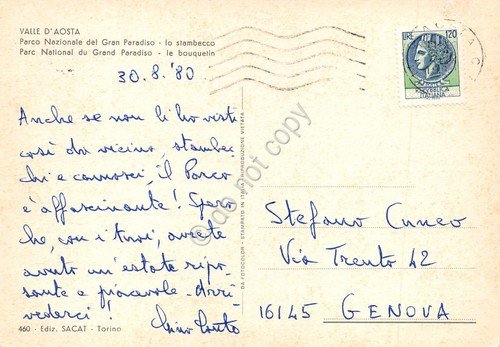 VALLE D'AOSTA
Parco Nazionale del Gran Paradiso - lo stambecco
Parc National du Grand Paradiso - le bouquetin
30.8.'80
Anche se non li ho visti
così da vicino, stambec-
chi e camosci, il Parco
è affascinante! Spero
che, con i tuoi, avrete
avuto un'estate ripo-
sante e piacevole. Arri
vederci!
460 - Ediz. SACAT - Torino
DA FOTOCOLOR - STAMPATO IN ITALIA - RIPRODUZIONE VIETATA
LIRE 120
REPUBBLICA
ITALIANA
Stefano Cuneo
Via Trento 42
16145 GENOVA
do not copy